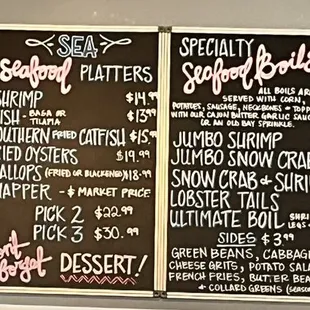 SEA
Seafood PLATTERS
SHRIMP $14.99
FISH - BASA OR TILAPIA $13.99
SOUTHERN FRIED CATFISH $15.
FRIED OYSTERS $19.99
SCALLOPS (FRIED OR BLACKENED) $18.99
SNAPPER - $ MARKET PRICE
PICK 2 $22.99
PICK 3 $30.99
Don't forget DESSERT!
SPECIALTY
Seafood Boils
ALL BOILS ARE
SERVED WITH CORN,
POTATOES, SAUSAGE, NECKBONES & TOPP
WITH OUR CAJUN BUTTER GARLIC SAUC
OR AN OLD BAY SPRINKLE.
JUMBO SHRIMP
JUMBO SNOW CRAB
SNOW CRAB & SHRI
LOBSTER TAILS
ULTIMATE BOIL SHRI
LEGS
SIDES $3.99
GREEN BEANS, CABBAG
CHEESE GRITS, POTATO SALA
FRENCH FRIES, BUTTER BEA
& COLLARD GREENS (SEASO